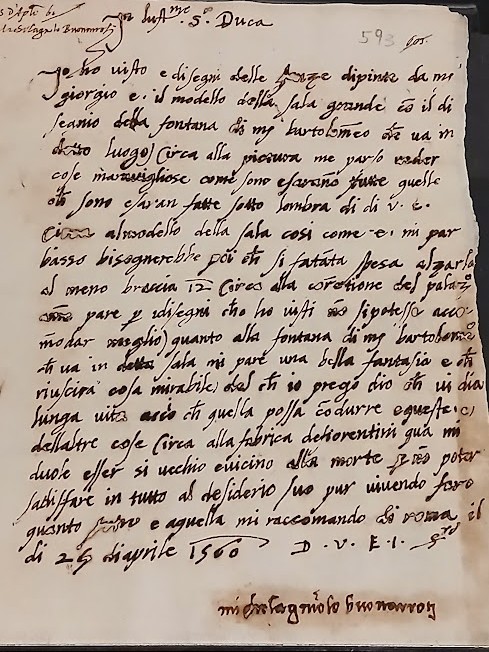 Buonarroti
Ill.mo S.r Duca
593
Io ho visto e disegni delle dipinte da mṡ
giorgio e. il modello della sala grande cō il di
segnio della fontana di mṡ bartolomeo che va in
detto luogo) Circa alla pictura me parso veder
cose maravigliose come sono e sarāno tutte quelle
ch̄ sono e saran fatte sotto lombra di di v. E.
Circa almodello della sala cosi come e. mi par
basso bisognerebbe poi ch̄ si fa tāta spesa alzarla
al meno braccia 12 Circa alla del palazo
pare p̄ idisegni cho ho visti nō si potessa acco
modar meglio) quanto alla fontana di mṡ bartolomeo
ch̄ va in detta sala mi pare una bella fantasia e ch̄
riuscira cosa mirabile) del ch̄ io prego dio ch̄ vi dia
lunga vita acio ch̄ quella possa cōdurre e queste. e
dellaltre cose Circa alla fabrica defiorentini qua mi
duole esser si vechio e vicino alla morte p̄ nō poter
satisfare in tutto al desiderio suo pur vivendo faro
quanto e aquella mi raccomando di roma il
di 25 di aprile 1560 D. V. E. I. S.rd
michelagniolo buonarroti